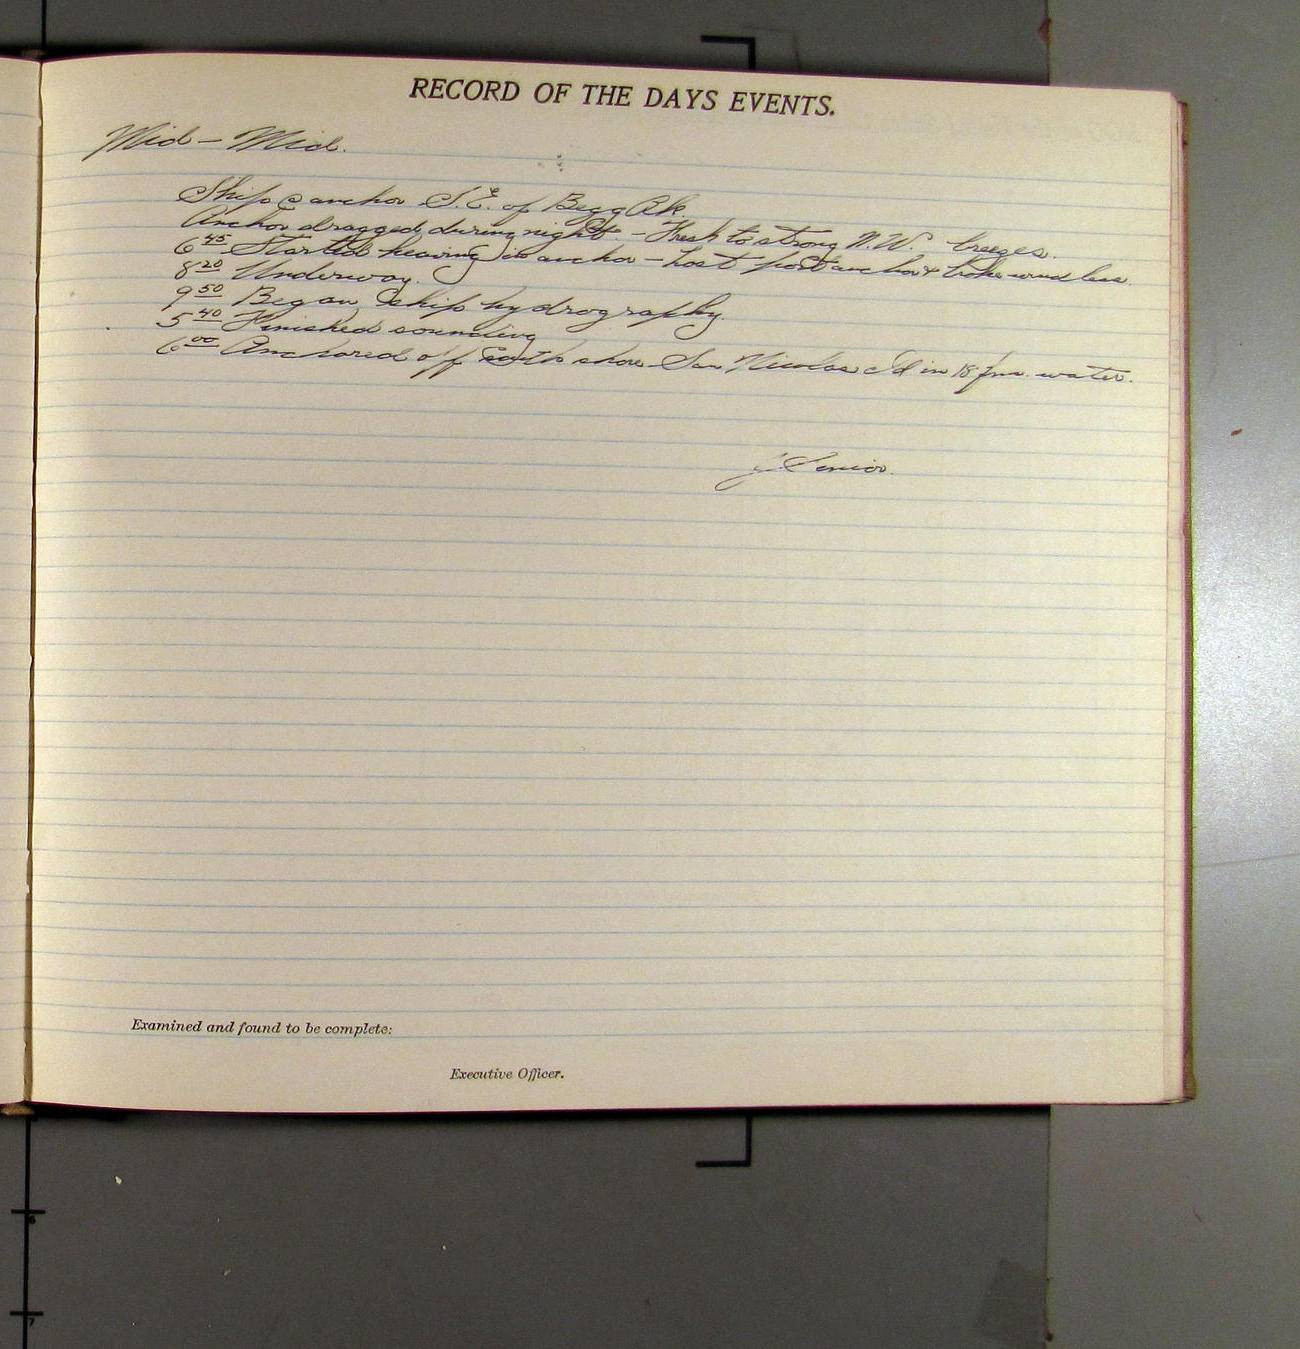 RECORD OF THE DAYS EVENTS.
Mid - Mid.
Ship @ anchor S.E. of Begg Rk.
Anchor dragged during night. - Fresh to strong N.W. breezes.
6 45 Started heaving in anchor - Lost port anchor & broke windlass.
8 20 Underway.
9 50 Began ship hydrography.
5 40 Finished sounding
6 00 Anchored off south shore San Nicolas Id in 18 fm. water.
J. Senior.
Examined and found to be complete:
Executive Officer.
6
7